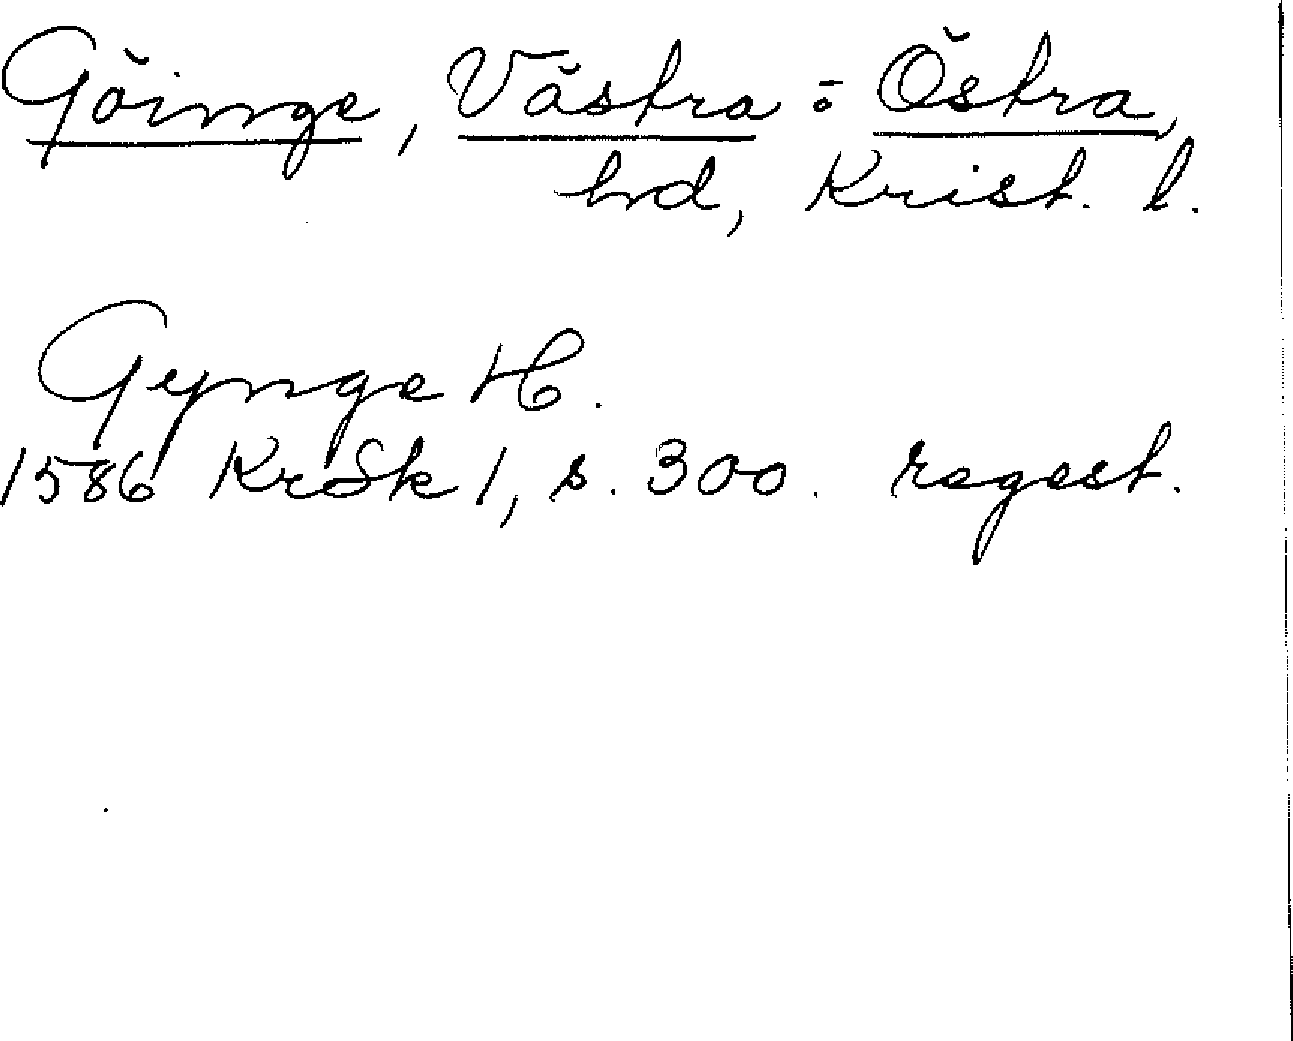 Göinge, Västra o Östra,
hd, Krist. l.
Gynge H.
1586 KrSk 1, s. 300. regest.